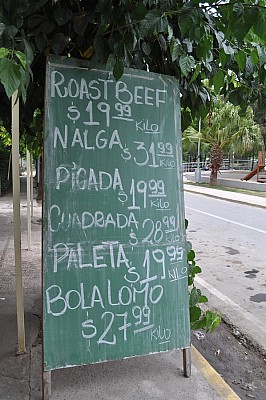 ROAST BEEF
$19.99 KILO
NALGA
$31.99 KILO
PICADA
$19.99 KILO
CUADRADA
$28.99 KILO
PALETA $19.99 KILO
BOLA LOMO
$27.99 KILO